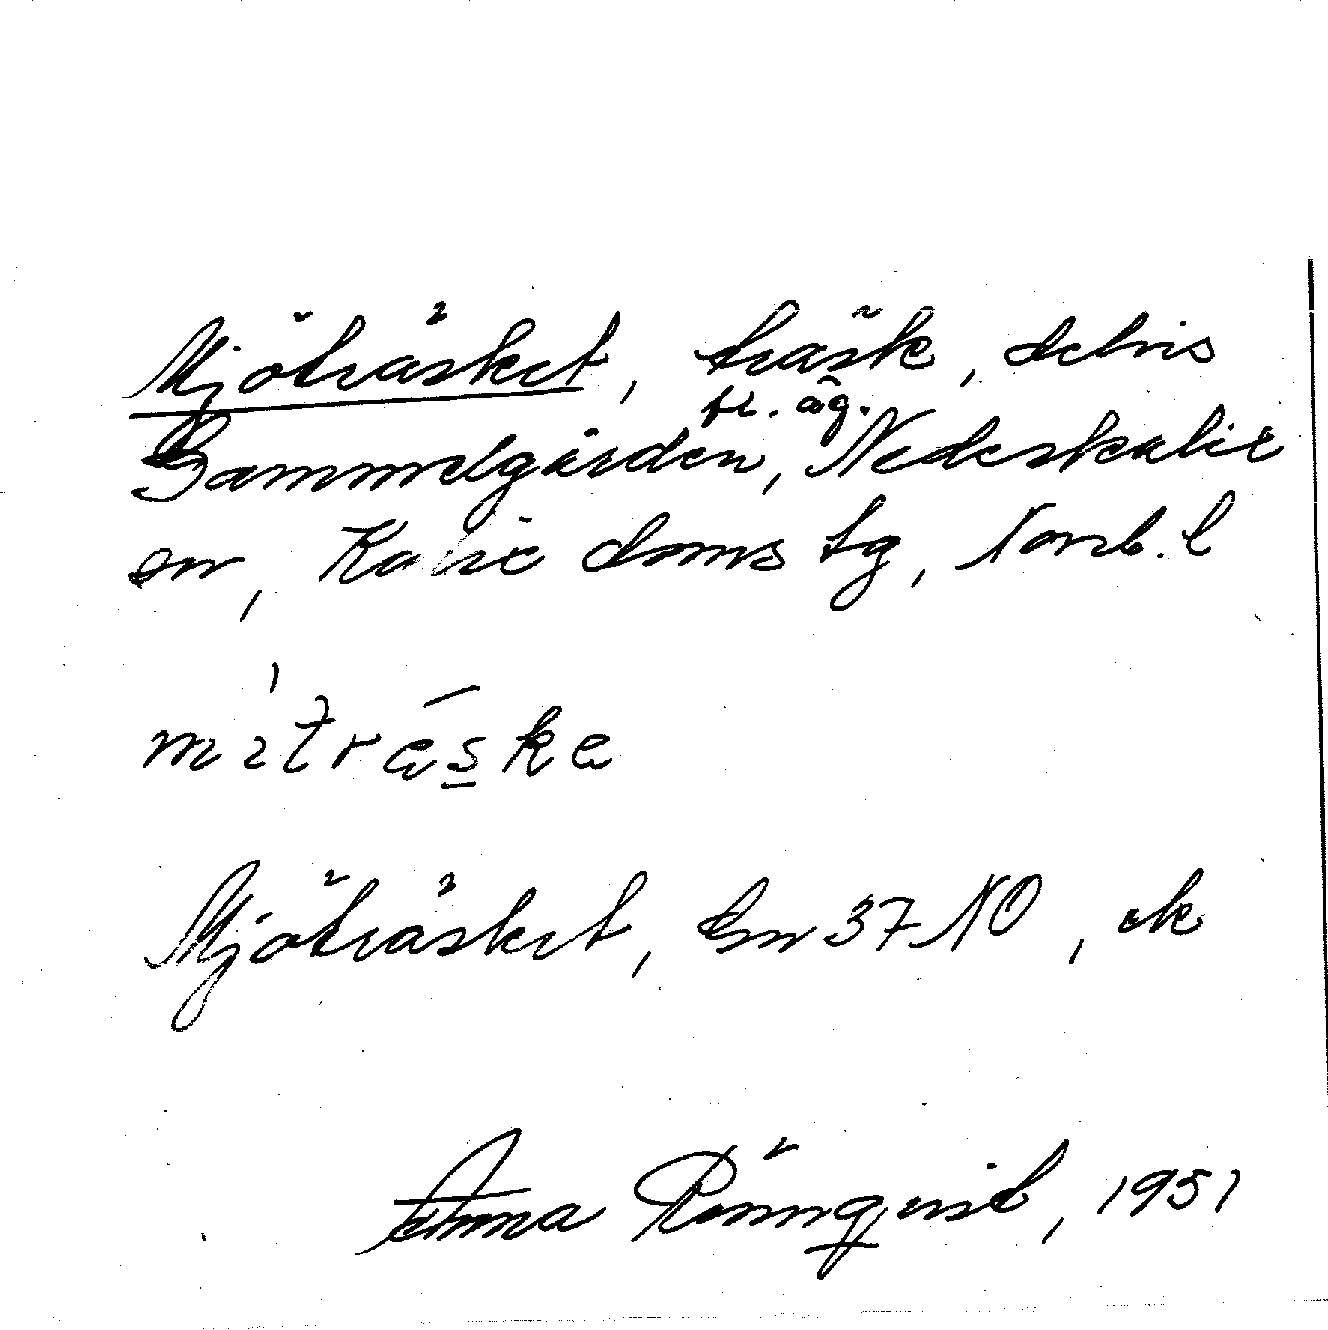 Mjöträsket, träsk, delvis
fr. äg.
Gammelgården, Nederkalix
sn, Kalix doms tg, Norrb. l
mìtrǽs̲ka
Mjöträsket, Gn 37 NO, ek
Anna Rönnqvist, 1951